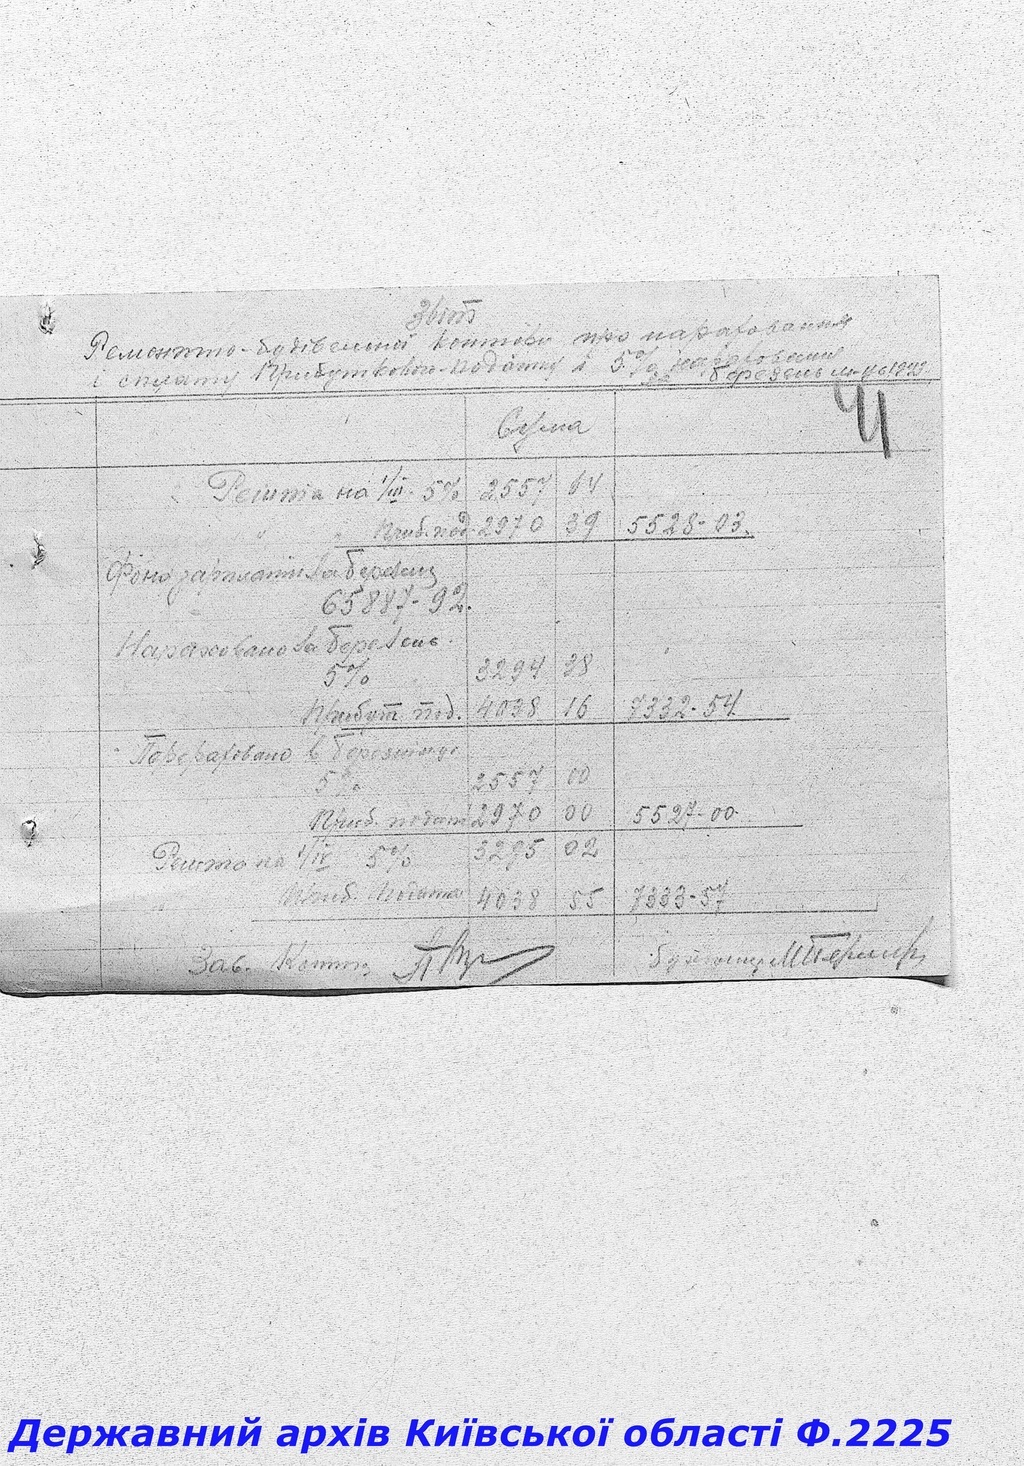 Звіт
Ремонтно-будівельної контори про нарахования
і сплату Прибуткового-податку і 5% нарахования
за березень м-ць
4
Сума
Решта на 1/III. 5% 2557 64
" " Приб. под. 2970 39 5528-03.
Фонд зарплати за березец
65887-92.
Нараховано за березень.
5% 3294 38
Прибут. под. 4038 16 7332-54
Перераховано в березні
5% 2557 00
Приб. подат 2970 00 5527-00
Решта на 1/IV 5% 3295 02
Приб. податк 4038 55 7333-57
Зав. Конт.
Бухгалтер
Державний архів Київської області Ф.2225